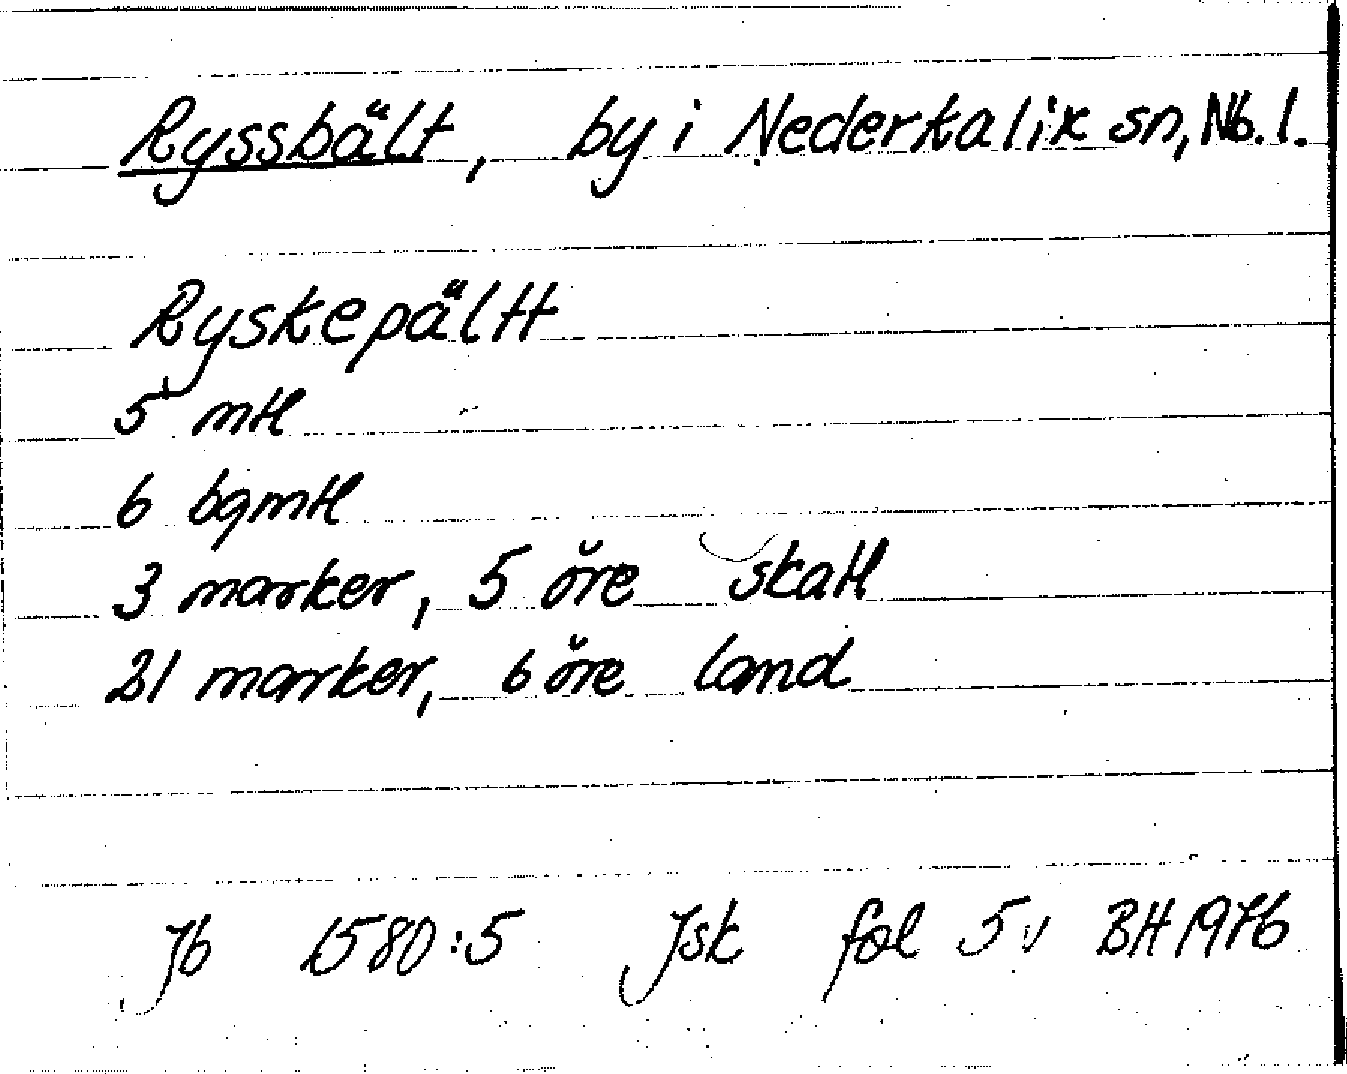 Ryssbält, by i Nederkalix sn, Nb. l.
Ryskepältt
5 mtl
6 bqmtl
3 marker, 5 öre skatt
21 marker, 6 öre land
Jb 1580:5 Jsk fol 5v BH 1976